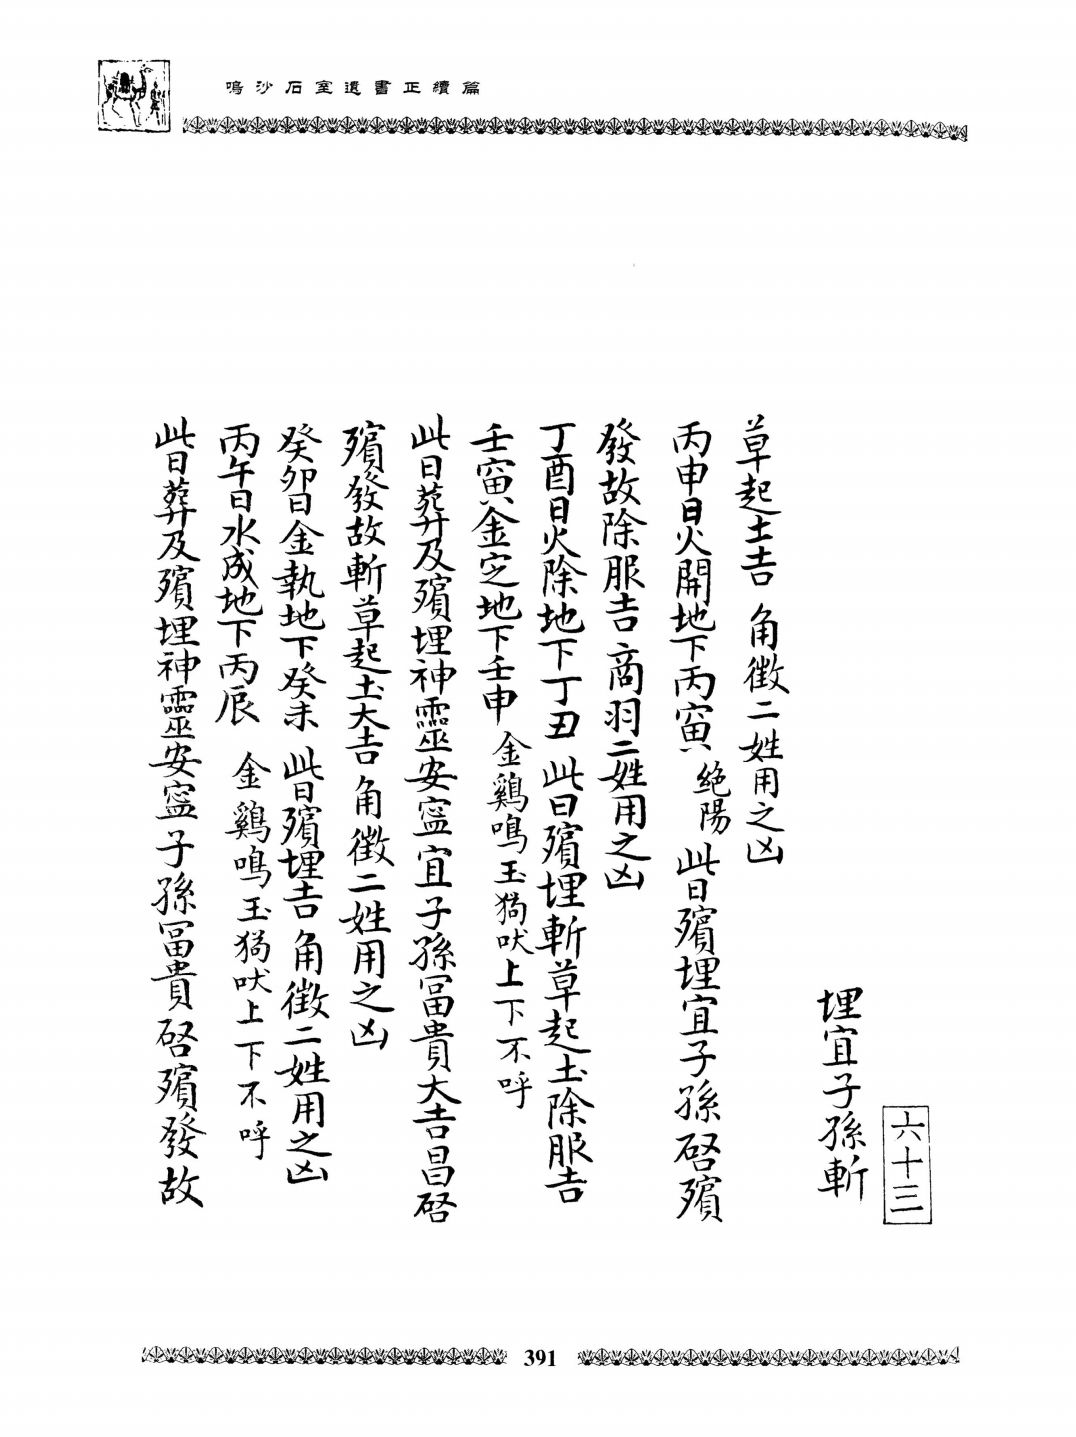 鳴沙石室遺書正續篇
六十三
埋宜子孫斬
草起土吉 角徵二姓用之凶
丙申日火開地下丙寅 絶陽 此日殯埋宜子孫啓殯
發故除服吉 商羽二姓用之凶
丁酉日火除地下丁丑 此日殯埋斬草起土除服吉
壬寅金定地下壬申 金鷄鳴玉猧吠上下不呼
此日葬及殯埋神靈安寍宜子孫冨貴大吉昌啓
殯發故斬草起土大吉 角徵二姓用之凶
癸卯日金執地下癸未 此日殯埋吉 角徵二姓用之凶
丙午日水成地下丙辰 金鷄鳴玉猧吠上下不呼
此日葬及殯埋神靈安寍子孫冨貴啓殯發故
391